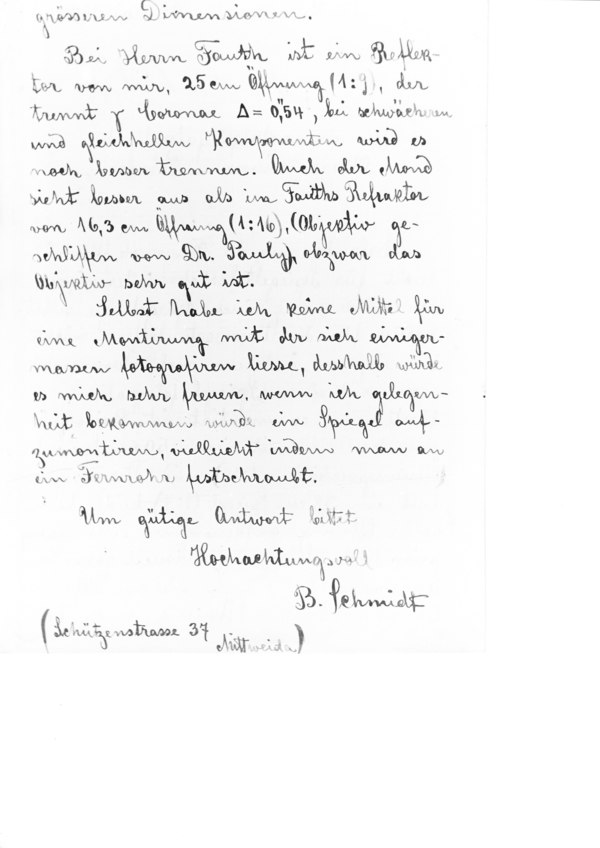 grösseren Dimensionen.
Bei Herrn Fauth ist ein Reflek-
tor von mir, 25 cm Öffnung (1:9), der
trennt γ Coronae Δ = 0",54, bei schwächeren
und gleichhellen Komponenten wird es
noch besser trennen. Auch der Mond
sieht besser aus als im Fauths Refraktor
von 16,3 cm Öffnung (1:16), (Objektiv ge-
schliffen von Dr. Pauly), obzwar das
Objektiv sehr gut ist.
Selbst habe ich keine Mittel für
eine Montirung mit der sich einiger-
massen fotografiren liesse, desshalb würde
es mich sehr freuen, wenn ich gelegen-
heit bekommen würde ein Spiegel auf-
zumontiren, vielleicht indem man an
ein Fernrohr festschraubt.
Um gütige Antwort bittet
Hochachtungsvoll
B. Schmidt
(Schützenstrasse 37
Mittweida)